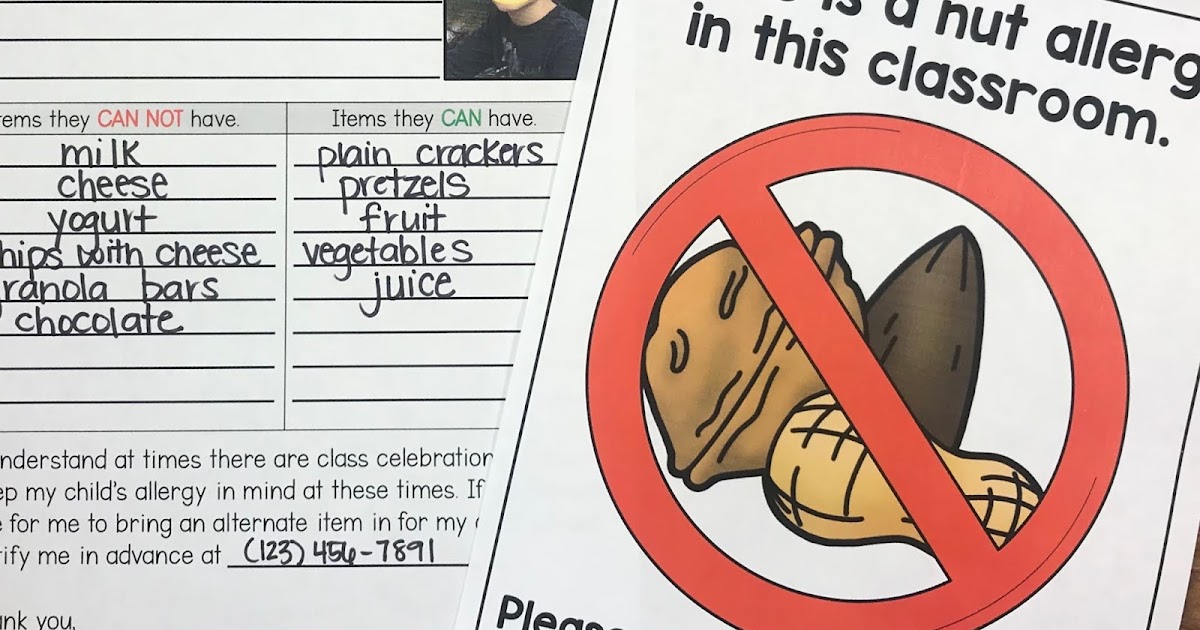 Items they CAN NOT have.
milk
cheese
yogurt
chips with cheese
granola bars
chocolate
Items they CAN have.
plain crackers
pretzels
fruit
vegetables
juice
understand at times there are class celebration
my child's allergy in mind at these times. If
for me to bring an alternate item in for my
me in advance at (123) 456-7891
you,
is a nut allerg
in this classroom.
Please